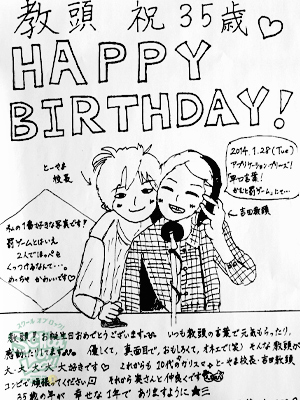 教頭 祝 35歳♡
HAPPY
BIRTHDAY!
とーやま
校長
2014.1.28(Tue)
アプリケーションプリーズ!
甲口言葉!
かむと罰ゲーム。にて…
吉田教頭
私の1番好きな写真です!
罰ゲームとはいえ
2人でほっぺを
くっつけるなんて…。
めっちゃ かわいいです♡
教頭!お誕生日おめでとうございます。いつも教頭の言葉で元気もらったり、
感動したりしてます。 優しくて、真面目で、おもしろくて、オネエで(笑) そんな教頭が
大大大大大好きです♡ これからも 10代のクリエとーやま校長・吉田教頭
コンビで頑張ってください それから奥さんと仲良くです
35歳の年が 幸せな1年で ありますように★